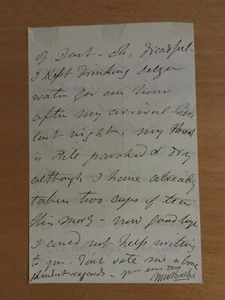 of Dust - oh, dreadful.
I kept drinking Selzer
water for an hour
after my arrival here,
last night; my throat
is still parched & dry
although I have already
taken two cups of tea
this morng - now goodbye
I could not help writing
to you. Don't vote me a bore
kindest regards - yrs